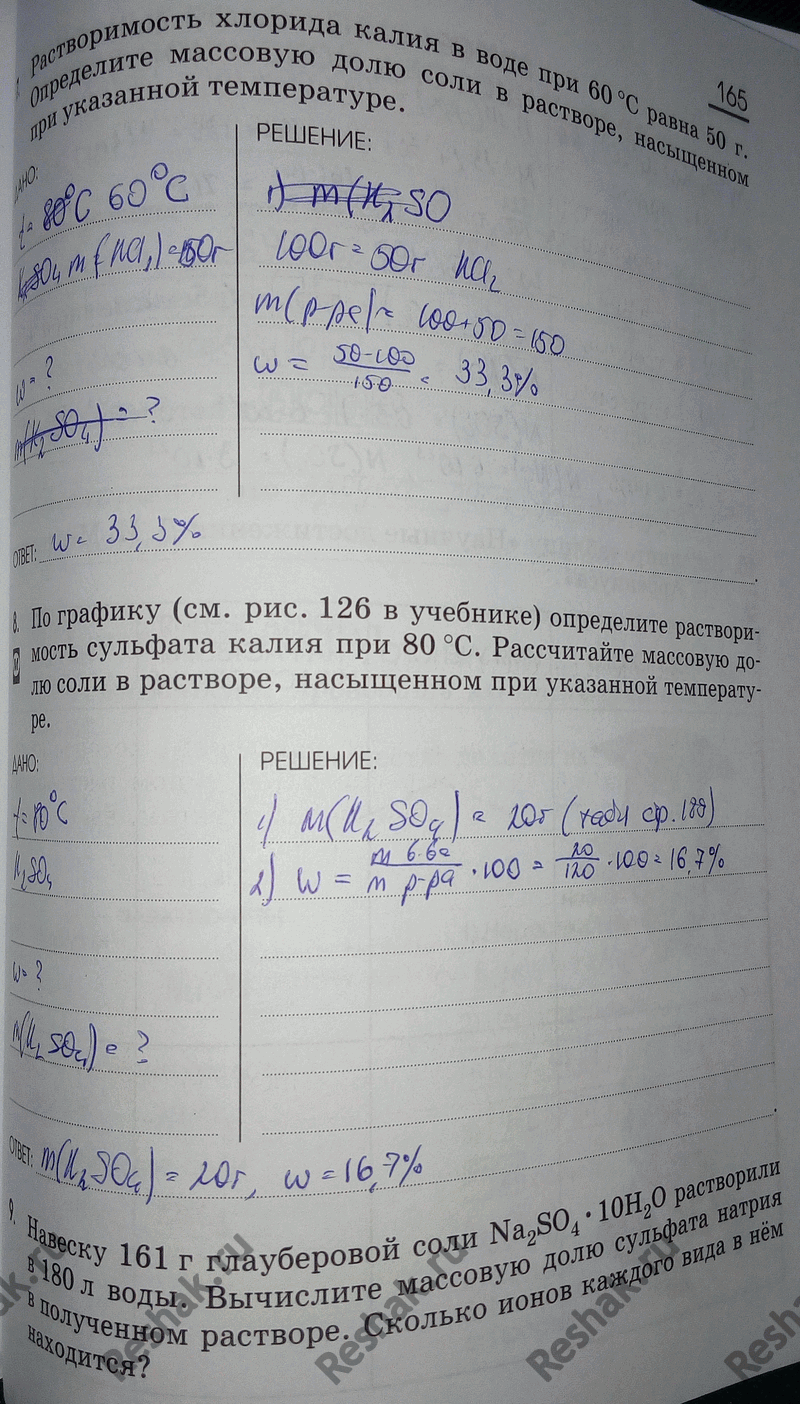 165
Растворимость хлорида калия в воде при 60 °C равна 50 г.
Определите массовую долю соли в растворе, насыщенном
при указанной температуре.
ДАНО:
РЕШЕНИЕ:
t= 80°C 60°C
1) m(K2SO
SO4 m (KCl,)=50г
100г = 50г KCl2
m(р-ра)= 100+50=150
w=?
w = 50·100/150 = 33,3%
m(K2SO4) = ?
ОТВЕТ: w= 33,3%
8. По графику (см. рис. 126 в учебнике) определите раствори-
мость сульфата калия при 80 °C. Рассчитайте массовую до-
лю соли в растворе, насыщенном при указанной температу-
ре.
ДАНО:
РЕШЕНИЕ:
t=80°C
1) m(K2SO4) = 20г (табл стр. 188)
K2SO4
2) w = m в-ва/m р-ра · 100 = 20/120 · 100 = 16,7%
w=?
m(K2SO4) = ?
ОТВЕТ: m(K2SO4) = 20г, w=16,7%
9. Навеску 161 г глауберовой соли Na2SO4 · 10H2O растворили
в 180 л воды. Вычислите массовую долю сульфата натрия
в полученном растворе. Сколько ионов каждого вида в нём
находится?
Reshak.ru
Reshak.ru
Reshak.ru